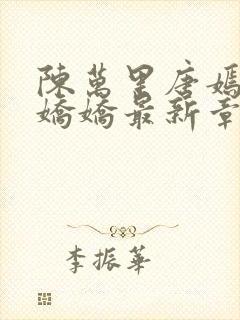 陳萬里唐嫣
嬌嬌最新章
李振華